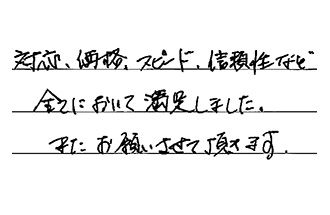 対応、価格、スピード、信頼性など
全てにおいて満足しました。
またお願いさせて頂きます。